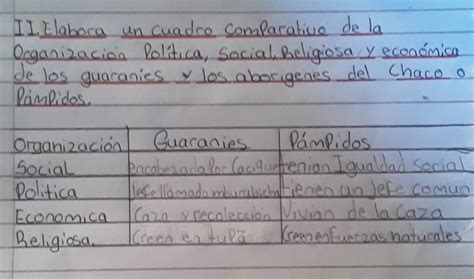 II Elabora un cuadro comparativo de la
Organización Política, Social, Religiosa y económica
de los guaraníes y los aborígenes del Chaco o
Pámpidos.
Organización Guaranies Pámpidos
Social encabezada Por Cacique tenian Igualdad Social
Politica Jefe llamado mburubicha tienen un Jefe comun
Economica Caza y recolección Vivian de la Caza
Religiosa. Creen en tupã Creen en Fuerzas naturales